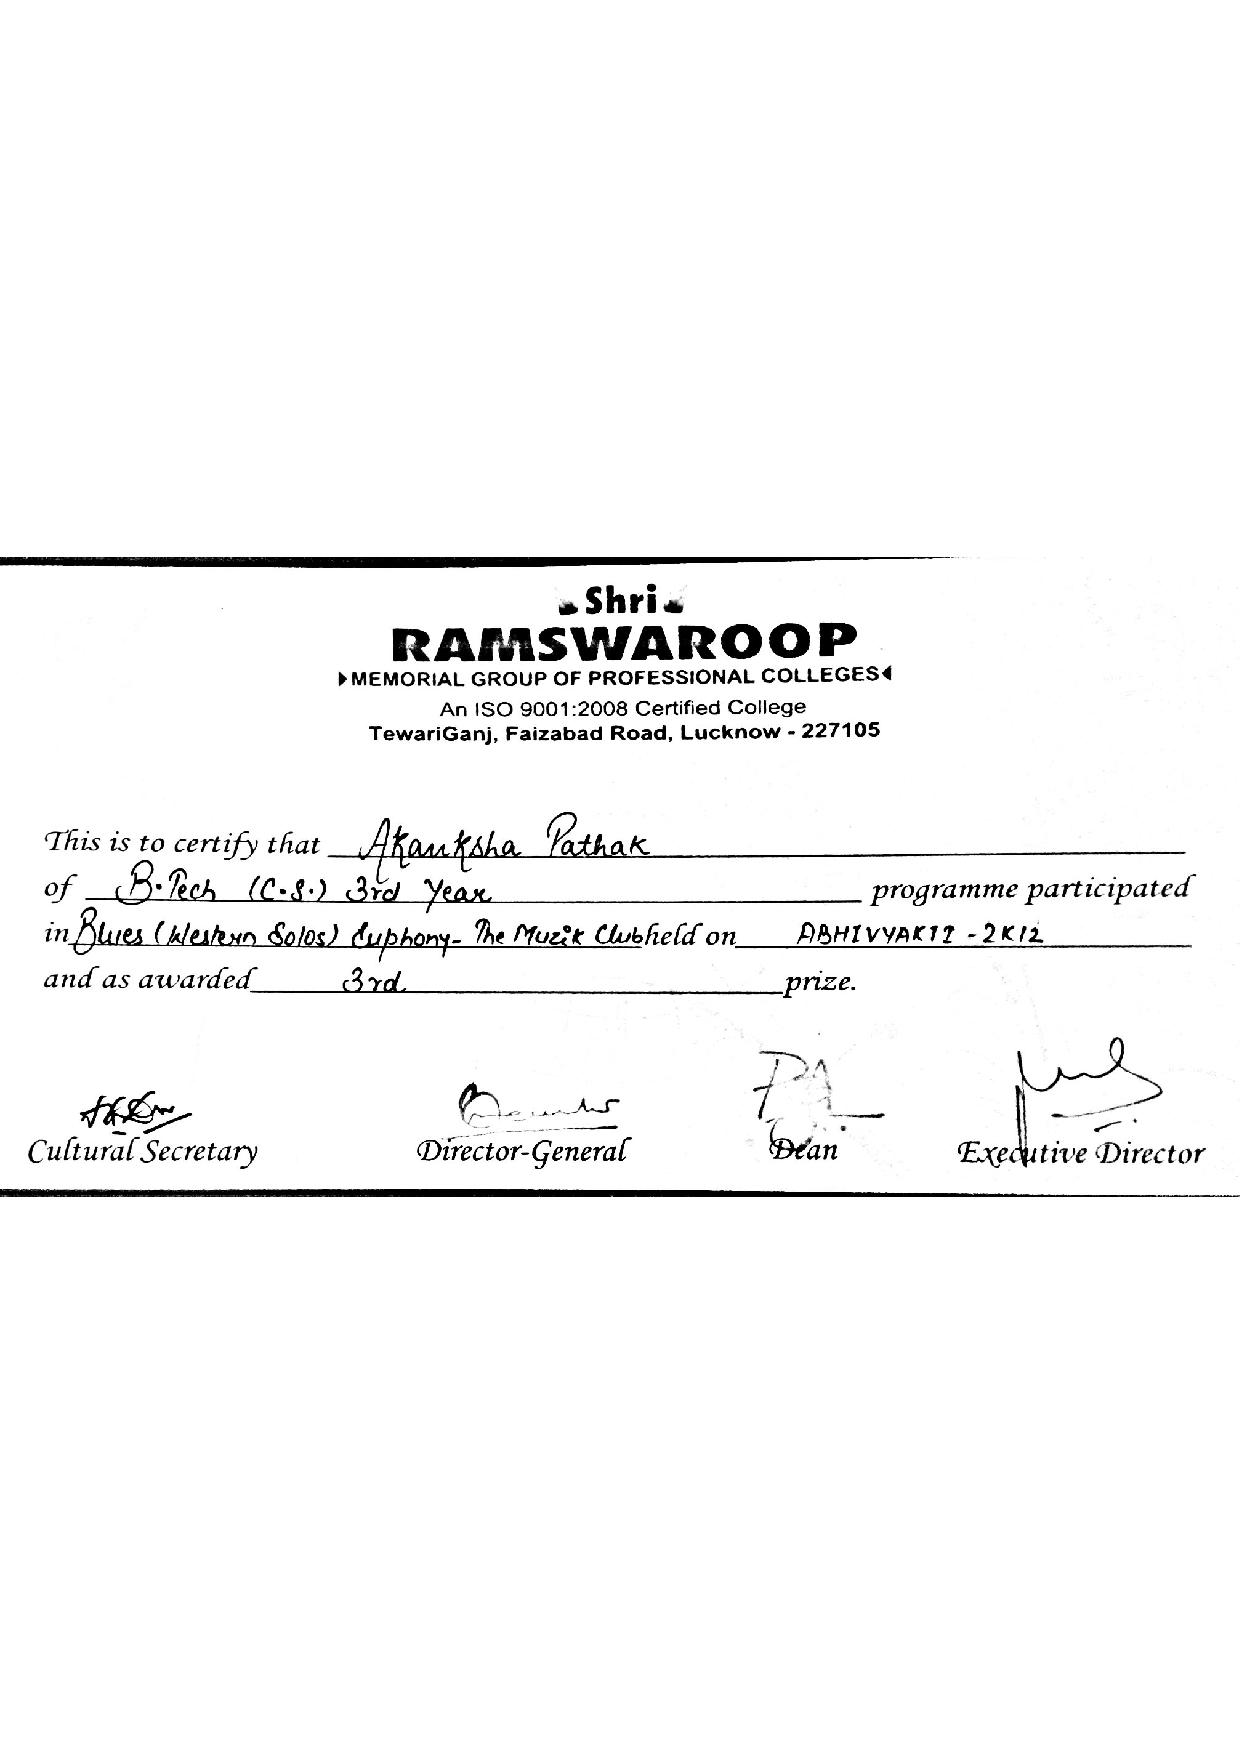 Shri
RAMSWAROOP
MEMORIAL GROUP OF PROFESSIONAL COLLEGES
An ISO 9001:2008 Certified College
TewariGanj, Faizabad Road, Lucknow - 227105
This is to certify that Akanksha Pathak
of B.Tech (C.S.) 3rd Year programme participated
in Blues (Western Solos) Euphony- The Muzik Club held on ABHIVYAKTI - 2K12
and as awarded 3rd prize.
Cultural Secretary Director-General Dean Executive Director